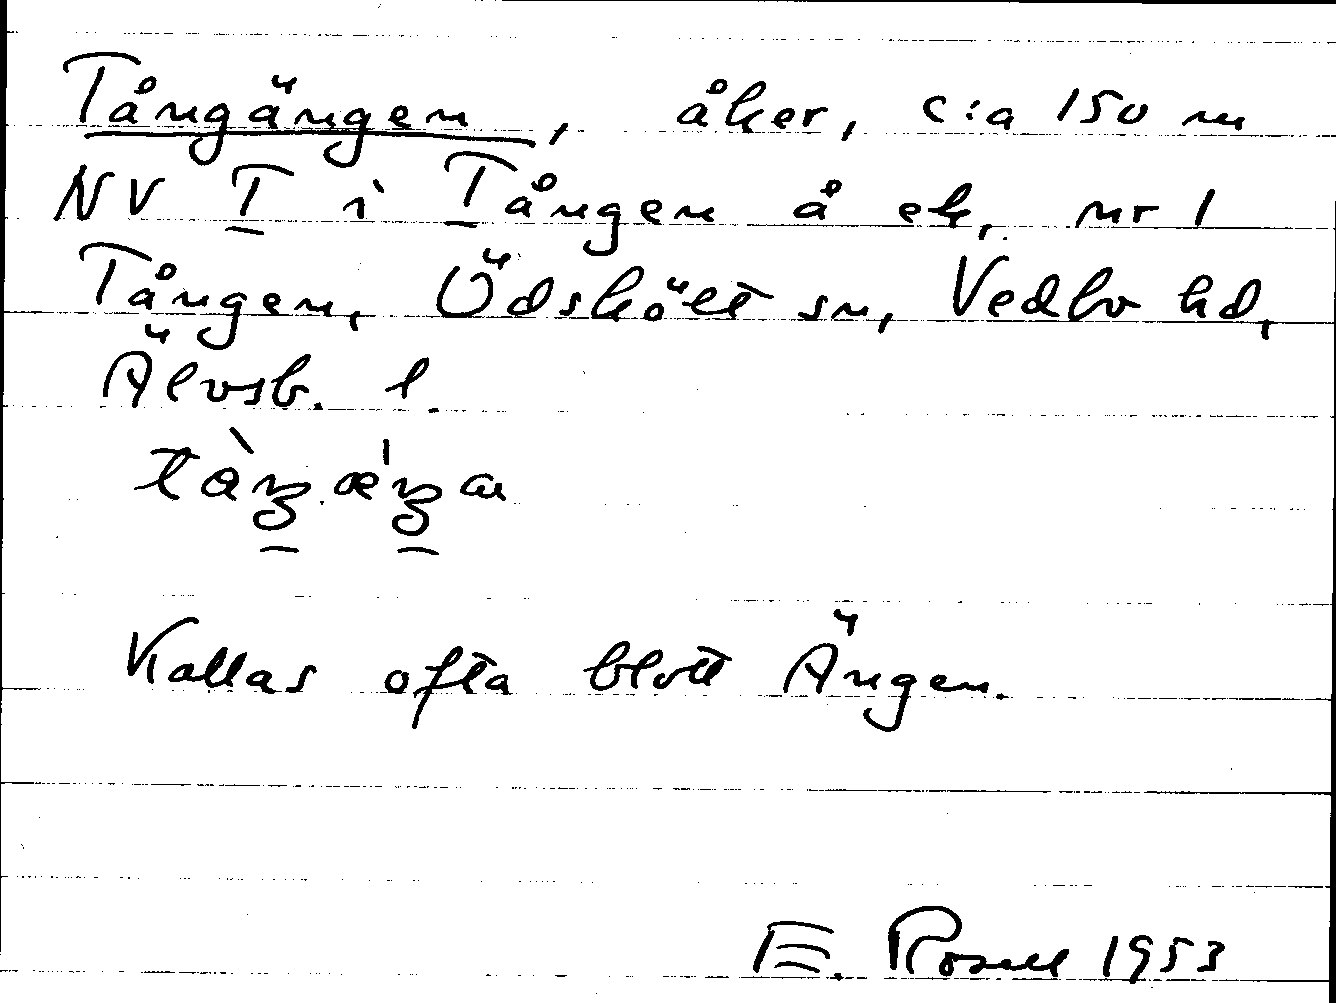 Tångängen, åker, c:a 150 m
NV T i Tången å ek. nr 1
Tången, Ödskölt sn, Vedbo hd,
Älvsb. l.
Kallas ofta blott Ängen.
E. Rosell 1953